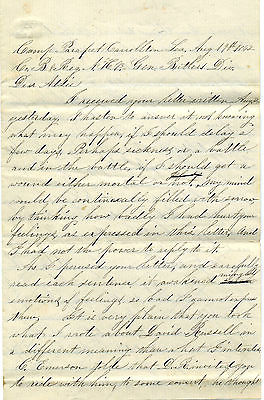 Camp Parapet Carrollton La, Aug 19th 1862
Co. B 8 Reg N.H.V. Gen Butlers Div
Dear Abbie
I received your letter written Aug
yesterday. I hasten to answer it not knowing
what may happen, if I should delay a
few days. Perhaps sickness or a battle
and in the battle, if I should get a
wound either mortal or not, my mind
would be continually filled with sorrow
by thinking how badly I had hurt your
feelings, as expressed in this letter, and
I had not the power to reply to it.
As I perused your letter, and carefully
read each sentence it awakened
emotions of feelings, so bad I
them. It is very plain that you took
what I wrote about David Russell in
a different meaning than what I intended
C. Emerson told that D. R. invited you
to ride with him to some concert, he thought